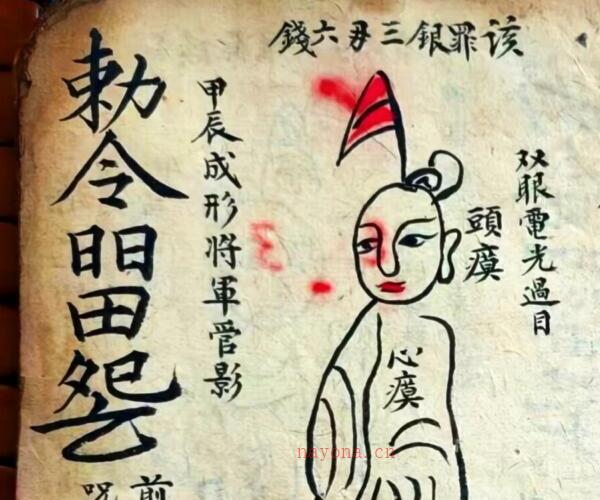 该罪銀三六錢
双眼電光過目
頭瘼
心瘼
甲辰成形將軍影
勅令昍田
前
nayona.cn